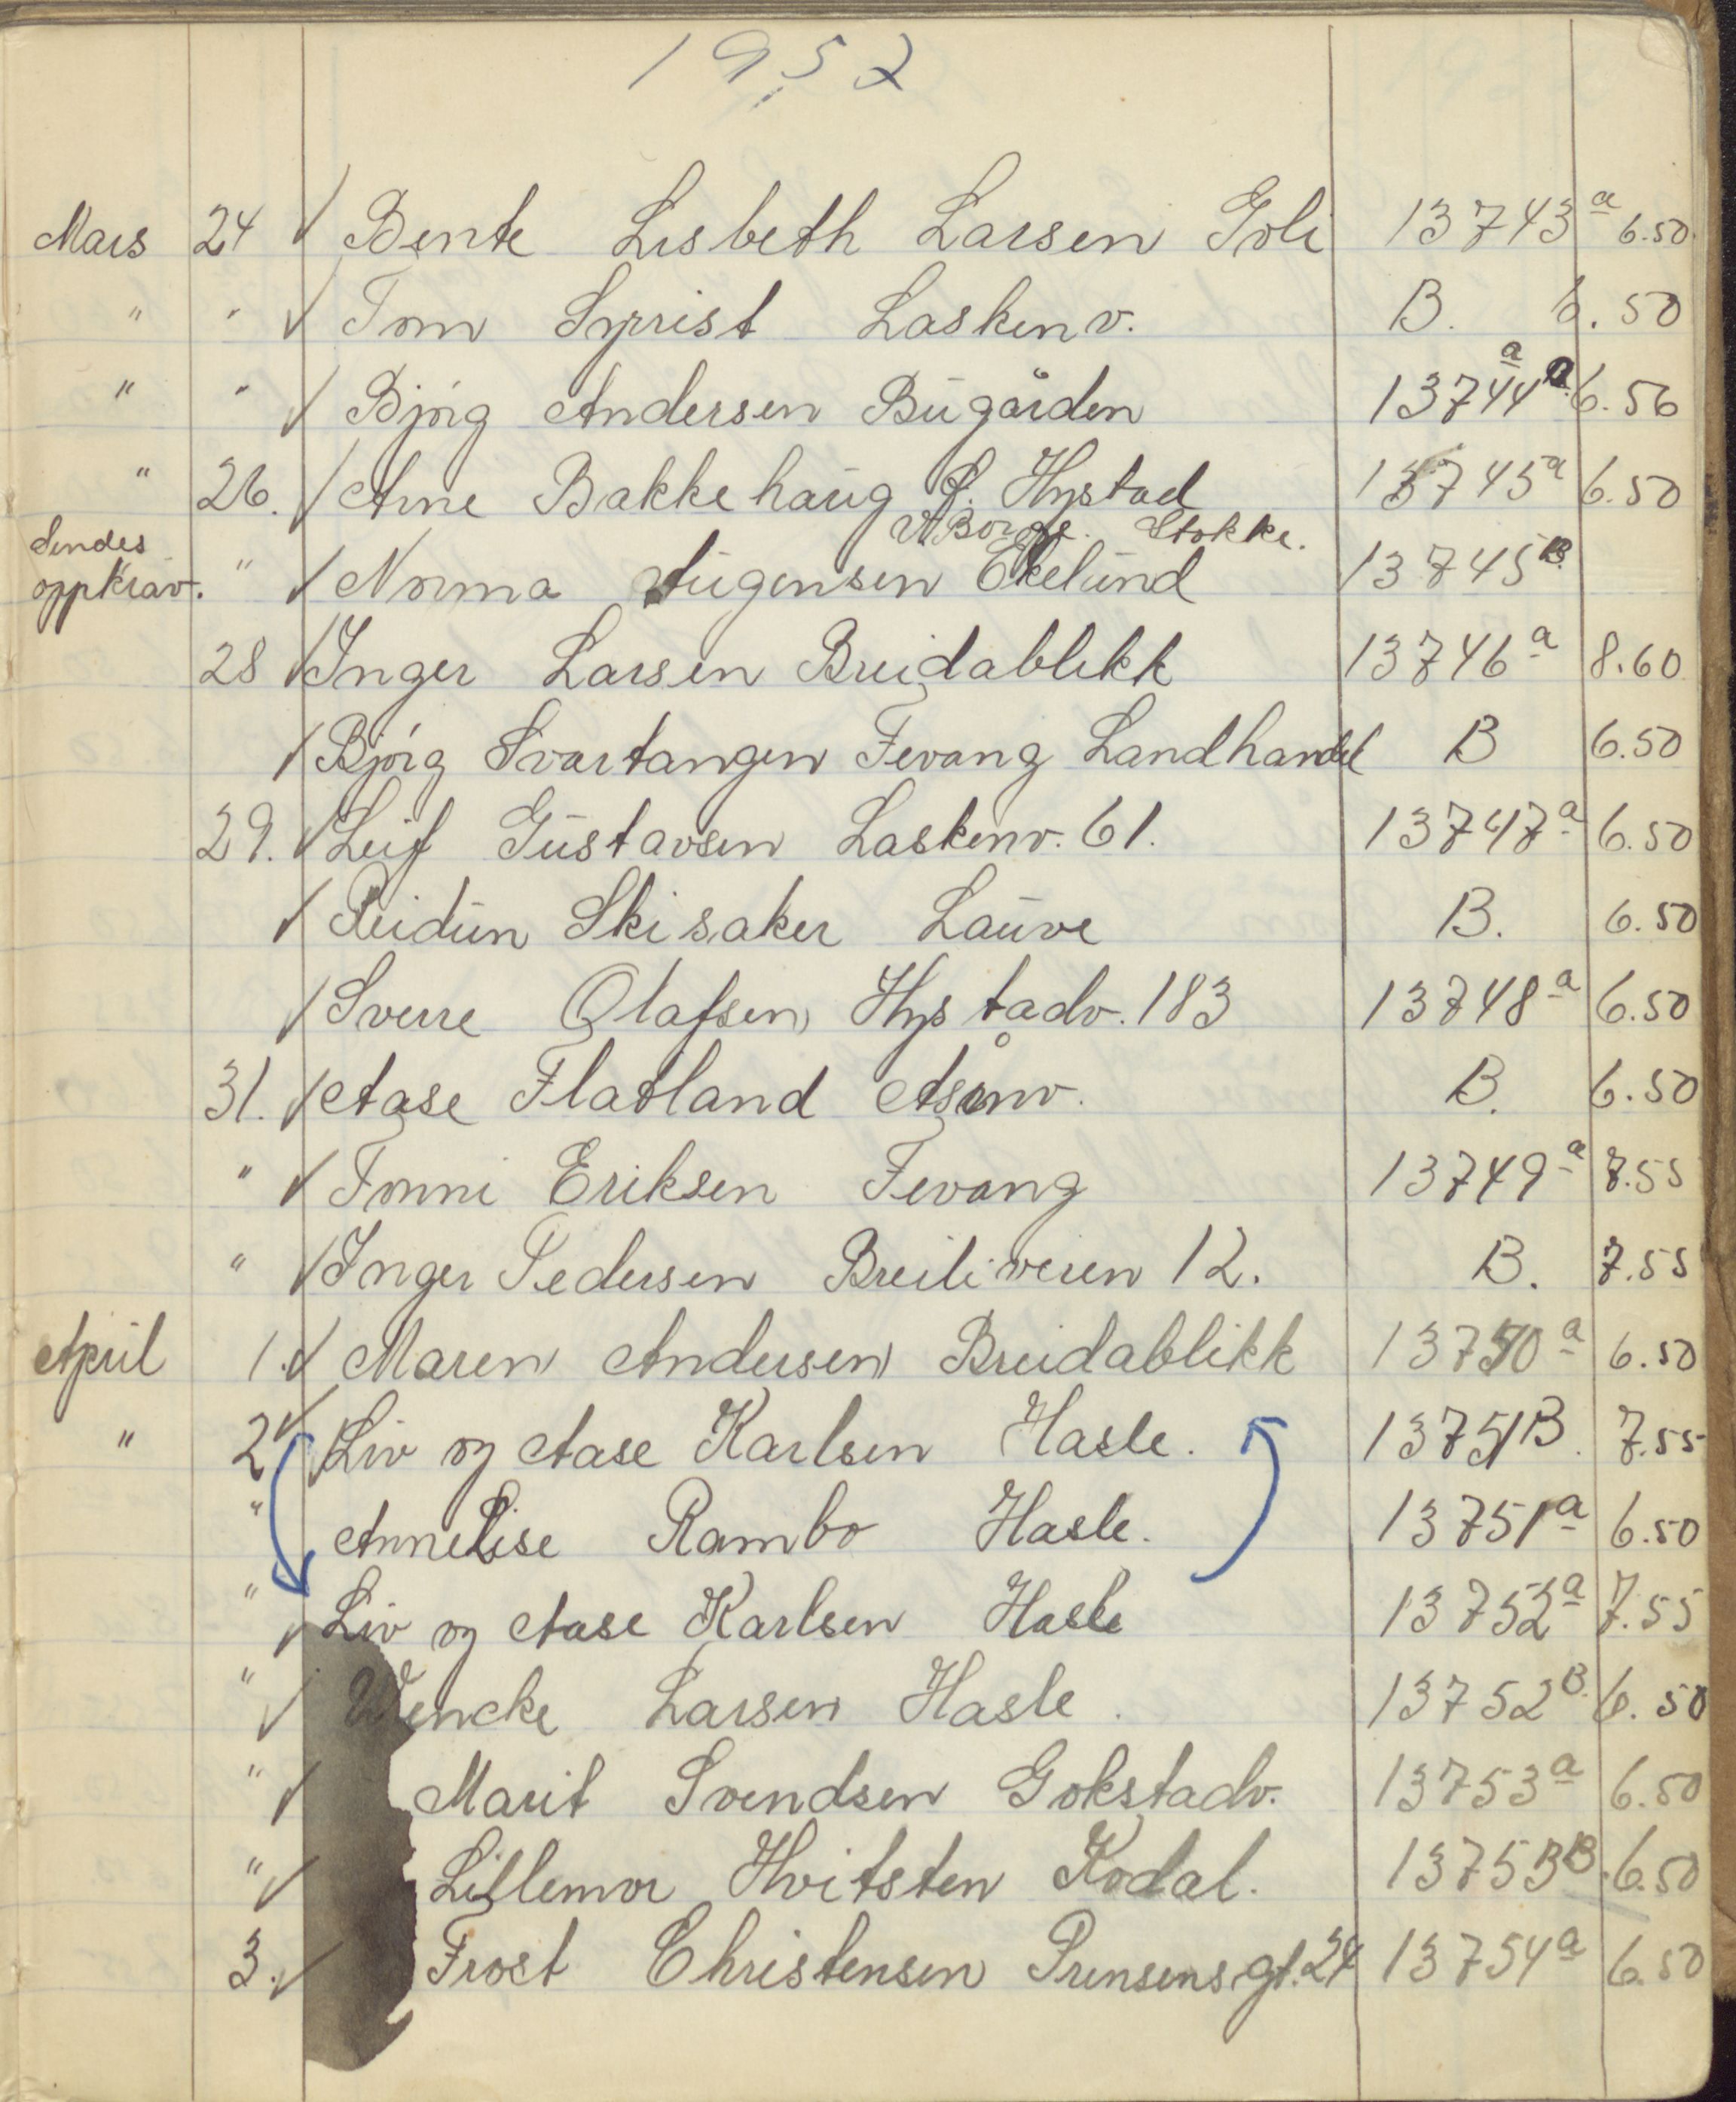 1952
Mars 24 √ Bente Lisbeth Larsen Goli 13743 a 6.50
" " √ Tom Syrrist Laskenv. B. 6.50
" " √ Bjørg Andersen Bugården 13744 a 6.50
" 26. √ Arne Bakkehaug Hystad 13745 a 6.50
V Borge. Stokke.
Sendes
oppkrav. " √ Norma Augensen Ekelund 13745 B.
28 √ Inger Larsen Breidablikk 13746 a 8.60
√ Bjørg Svartangen Fevang Landhandel B 6.50
29. √ Leif Gustavsen Laskenv. 61. 13747 a 6.50
√ Reidun Skisaker Lauve B. 6.50
√ Sverre Olafsen Hystadv. 183 13748 a 6.50
31. √ Aase Flatland Åsanv. B. 6.50
" √ Tonni Eriksen Fevang 13749 a 7.55
" √ Inger Pedersen Breiliveien 12. B. 7.55
April 1. √ Maren Andersen Breidablikk 13750 a 6.50
" 2 √ Liv og Aase Karlsen Hasle. 13751 B. 7.55
" AnneLise Rambo Hasle. 13751 a 6.50
" √ Liv og Aase Karlsen Hasle 13752 a 7.55
" √ Wencke Larsen Hasle. 13752 B. 6.50
" √ Marit Svendsen Gokstadv. 13753 a 6.50
" √ Lillemor Hvitsten Kodal. 13753 B. 6.50
3. √ Frost Christensen Prinsensgt. 24 13754 a 6.50